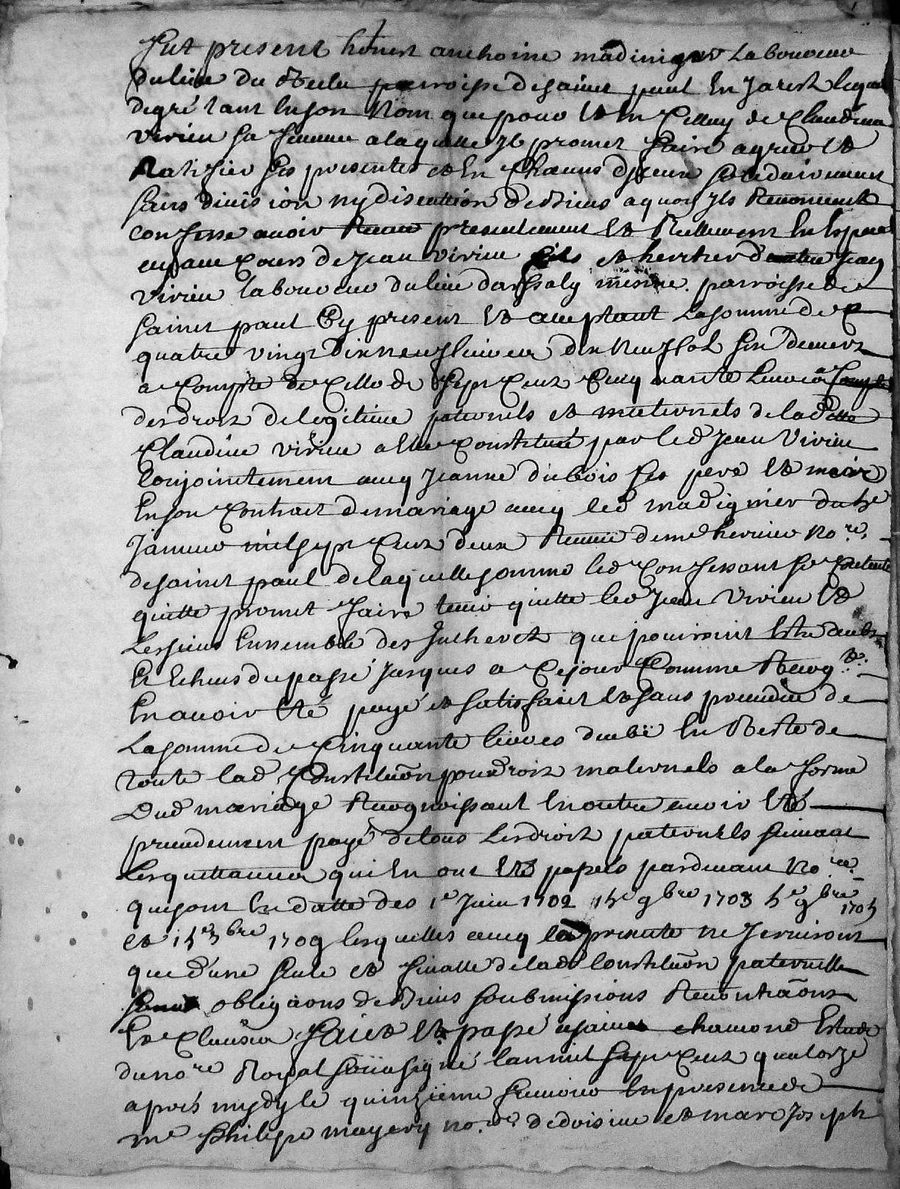 Fut present honest anthoine madinigner laboureur
du lieu du parroisse de saint paul en Jarest lequel
de gré tant en son Nom que pour et en Celluy de Claudine
Virieu sa femme a laquelle Il promet faire agreer et
Ratiffier ses presentes et en Chacuns d'jceux solidairement
sans division ny discution de biens a quoy Ils Renoncent
confesse avoir Receu presentement et Reellement En Espece
ayant Cours de Jean Virieu fils et heritier d'autre Jean
Virieu laboureur du lieu mesme parroisse de
Saint paul Cy present et acceptant La somme de
quatre vingt dix neuf livres dix Neuf sol six deniers
a Compte de Celle de Sept Cent Cinq livres
des droit de legitime paternels et maternels de lad.
Claudine virieu a elle Constitué par led Jean Virieu
Conjointement avecq Jeanne dubois ses pere et mere
En son Contrait de mariage avecq led madignier du
Janvier mil sept Cent deux Receu de me No.re
de saint paul de laquelle somme led Confessant se Contente
quitte promet faire tenir quitte led Jean Virieu et
Les siens Ensemble des Interets que pourroient Estre deubs
Et Echeus du passé Jusques a Ce jour Comme
En avoir Eté payé et satisfaict et sans prejudice de
La somme de Cinquante livres deube En Reste de
toute lad. Constitution pour droit maternels a la forme
Dud mariage Recognoissant En outre avoir Eté
precedement payé de tous Les droit paternels suivant
Les quittances qui En ont Eté pardevant No.re
qui sont En datte des 1e Juin 1702 15e 9bre 1703 5e 9bre 1705
et 15e 3bre 1709 lesquelles avecq la presente ne serviront
que d'une seule et finalle de lad Constitution paternelle
soubs obligaons de biens soubmissions Renontiaons
Et Clauses Faict et passé a saint chamond Estude
du no.re Royal soussigné l'an mil Sept Cent quatorze
apres midy le quinzieme En presence de
me Philipe mayery no.re de et marc Joseph